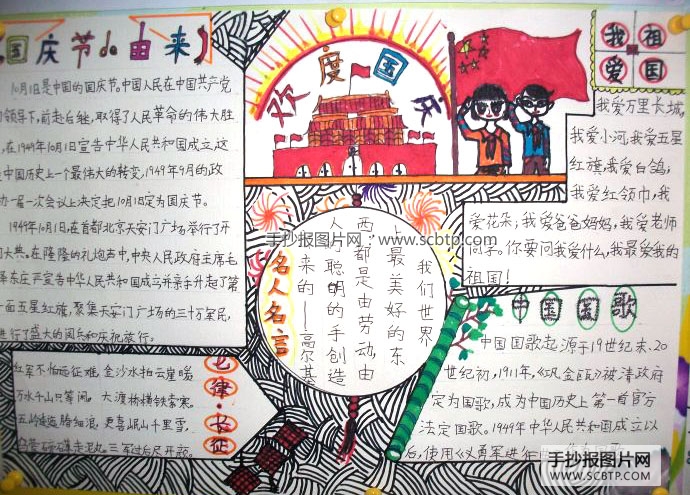 国庆节的由来
10月1日是中国的国庆节。中国人民在中国共产党
领导下,前赴后继,取得了人民革命的伟大胜
,在1949年10月1日宣告中华人民共和国成立,这
中国历史上一个最伟大的转变,1949年9月的政
办一届一次会议上决定把10月1日定为国庆节。
1949年10月1日,在首都北京天安门广场举行了开
大典。在隆隆的礼炮声中,中央人民政府主席毛
泽东庄严宣告中华人民共和国成立并亲手升起了第
一面五星红旗,聚集天安门广场的三十万军民,
进行了盛大的阅兵和庆祝旅行。
七律·长征
红军不怕远征难,金沙水拍云崖暖
万水千山只等闲。大渡桥横铁索寒。
五岭逶迤腾细浪,更喜岷山千里雪,
三军过后尽开颜。
欢度国庆
名人名言
我们世界
上最美好的东
西,都是由劳动,由
人的聪明的手创造
出来的——高尔基
我爱祖国
我爱万里长城,
我爱小河,我爱五星
红旗,我爱白鸽;
我爱红领巾,我
爱花朵;我爱爸爸妈妈,我爱老师
同学。你要问我爱什么,我最爱我的
祖国!
中国国歌
中国国歌起源于19世纪末、20
世纪初,1911年,《巩金瓯》被清政府
定为国歌,成为中国历史上第一首官方
法定国歌。1949年中华人民共和国成立以
后,使用《义勇军进行曲》
手抄报图片网:www.scbtp.com
手抄报图片网
SCBTP.COM